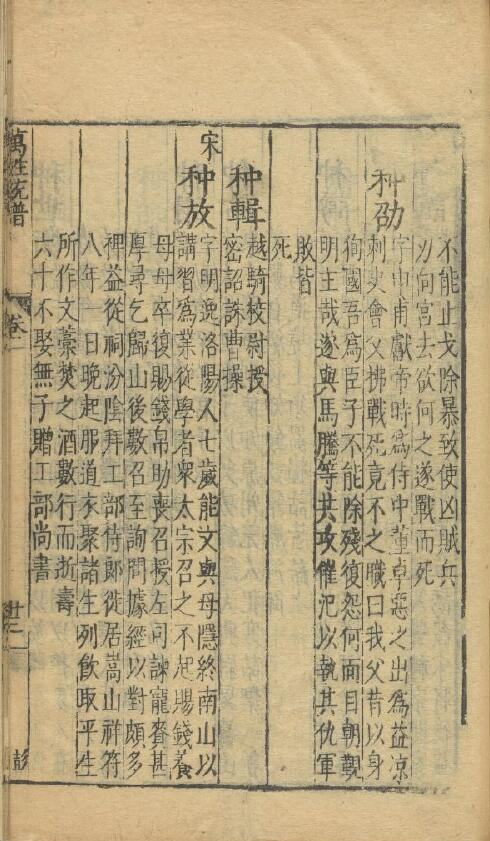 不能止戈除暴致使凶賊兵
刃向宮去欲何之遂戰而死
种劭
字申甫獻帝時為侍中董卓惡之出為益涼
刺史會父拂戰死竟不之職曰我父昔以身
徇國吾為臣子不能除殘復怨何面目朝覲
明主哉遂與馬騰等共攻傕汜以執其仇軍
敗皆
死
种輯
越騎校尉授
密詔誅曹操
宋
种放
字明逸洛陽人七歲能文與母隱終南山以
講習為業從學者衆太宗召之不起賜錢養
母母卒復賜錢帛助喪召授左司諫寵賚甚
厚尋乞歸山後數召至詢問據經以對頗多
裨益從祠汾陰拜工部侍郎徙居嵩山祥符
八年一日晚起服道衣聚諸生列飲取平生
所作文藁焚之酒數行而逝壽
六十不娶無子贈工部尚書
萬姓统譜
卷二
廿二
彭